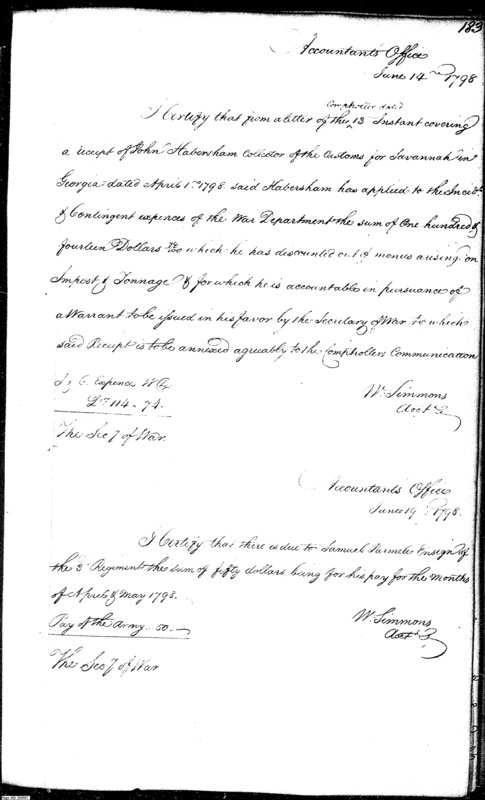 183
Accountants Office
June 14th 1798
Comptroller dated
I Certify that from a letter of the ^ 13 Instant covering
a receipt of John Habersham Collector of the Customs for Savannah in
Georgia dated April 1st 1798 said Habersham has applied to the Incidt
& Contingent expences of the War Department the sum of One hundred &
fourteen Dollars 74/100 which he has discounted out of monies arising on
Impost & Tonnage & for which he is accountable in pursuance of
a Warrant to be issued in his favor by the Secretary of War to which
said Receipt is to be annexed agreeably to the Comptrollers Communication
I & C. Expences W D
Drs 114 - 74.
W. Simmons
Acct
The Secy of War.
Accountants Office
June 19th 1798.
I Certify that there is due to Samuel Parmele Ensign of
the 3d Regiment the sum of fifty dollars being for his pay for the months
of April & May 1798.
Pay of the Army - 50. -
W. Simmons
Acct
The Secy of War